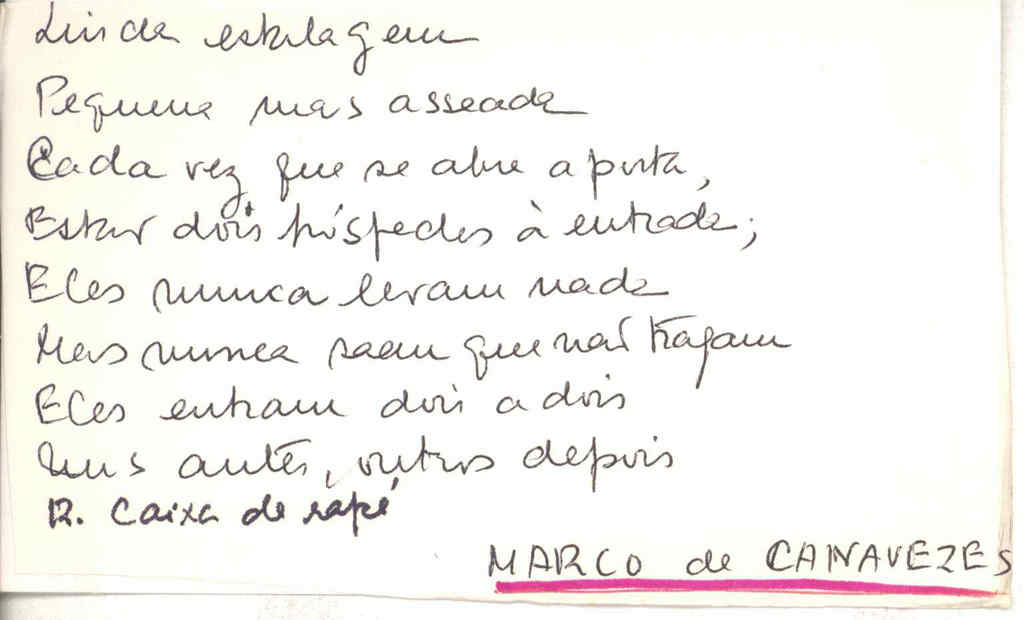 Linda estalagem
Pequena mas asseada
Cada vez que se abre a porta,
Estão dois hóspedes à entrada;
Eles nunca levam nada
Mas nunca saem que não tragam
Eles entram dois a dois
Uns antes, outros depois
R. Caixa de rapé
MARCO de CANAVEZES